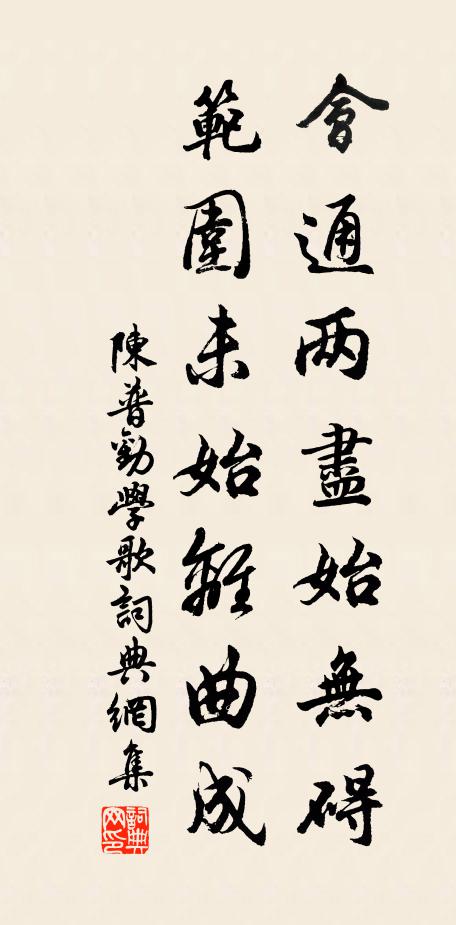 會通两盡始無碍
範圍未始離曲成
陳普勸學歌詞典網集
詞典网印